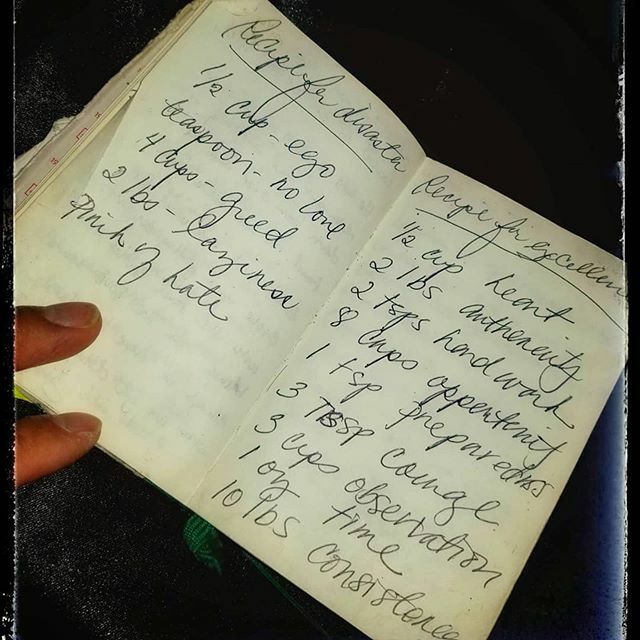 Recipe for disasta
1/2 cup - ego
teaspoon - no love
4 cups - greed
2 lbs - laziness
Pinch of hate
Recipe for excellen
1/2 cup heart
2 lbs authenticity
2 tsps hardwork
8 cups oppertunity
1 tsp preparedness
3 TBSSP courage
3 cups observation
1 oz time
10 lbs consistence